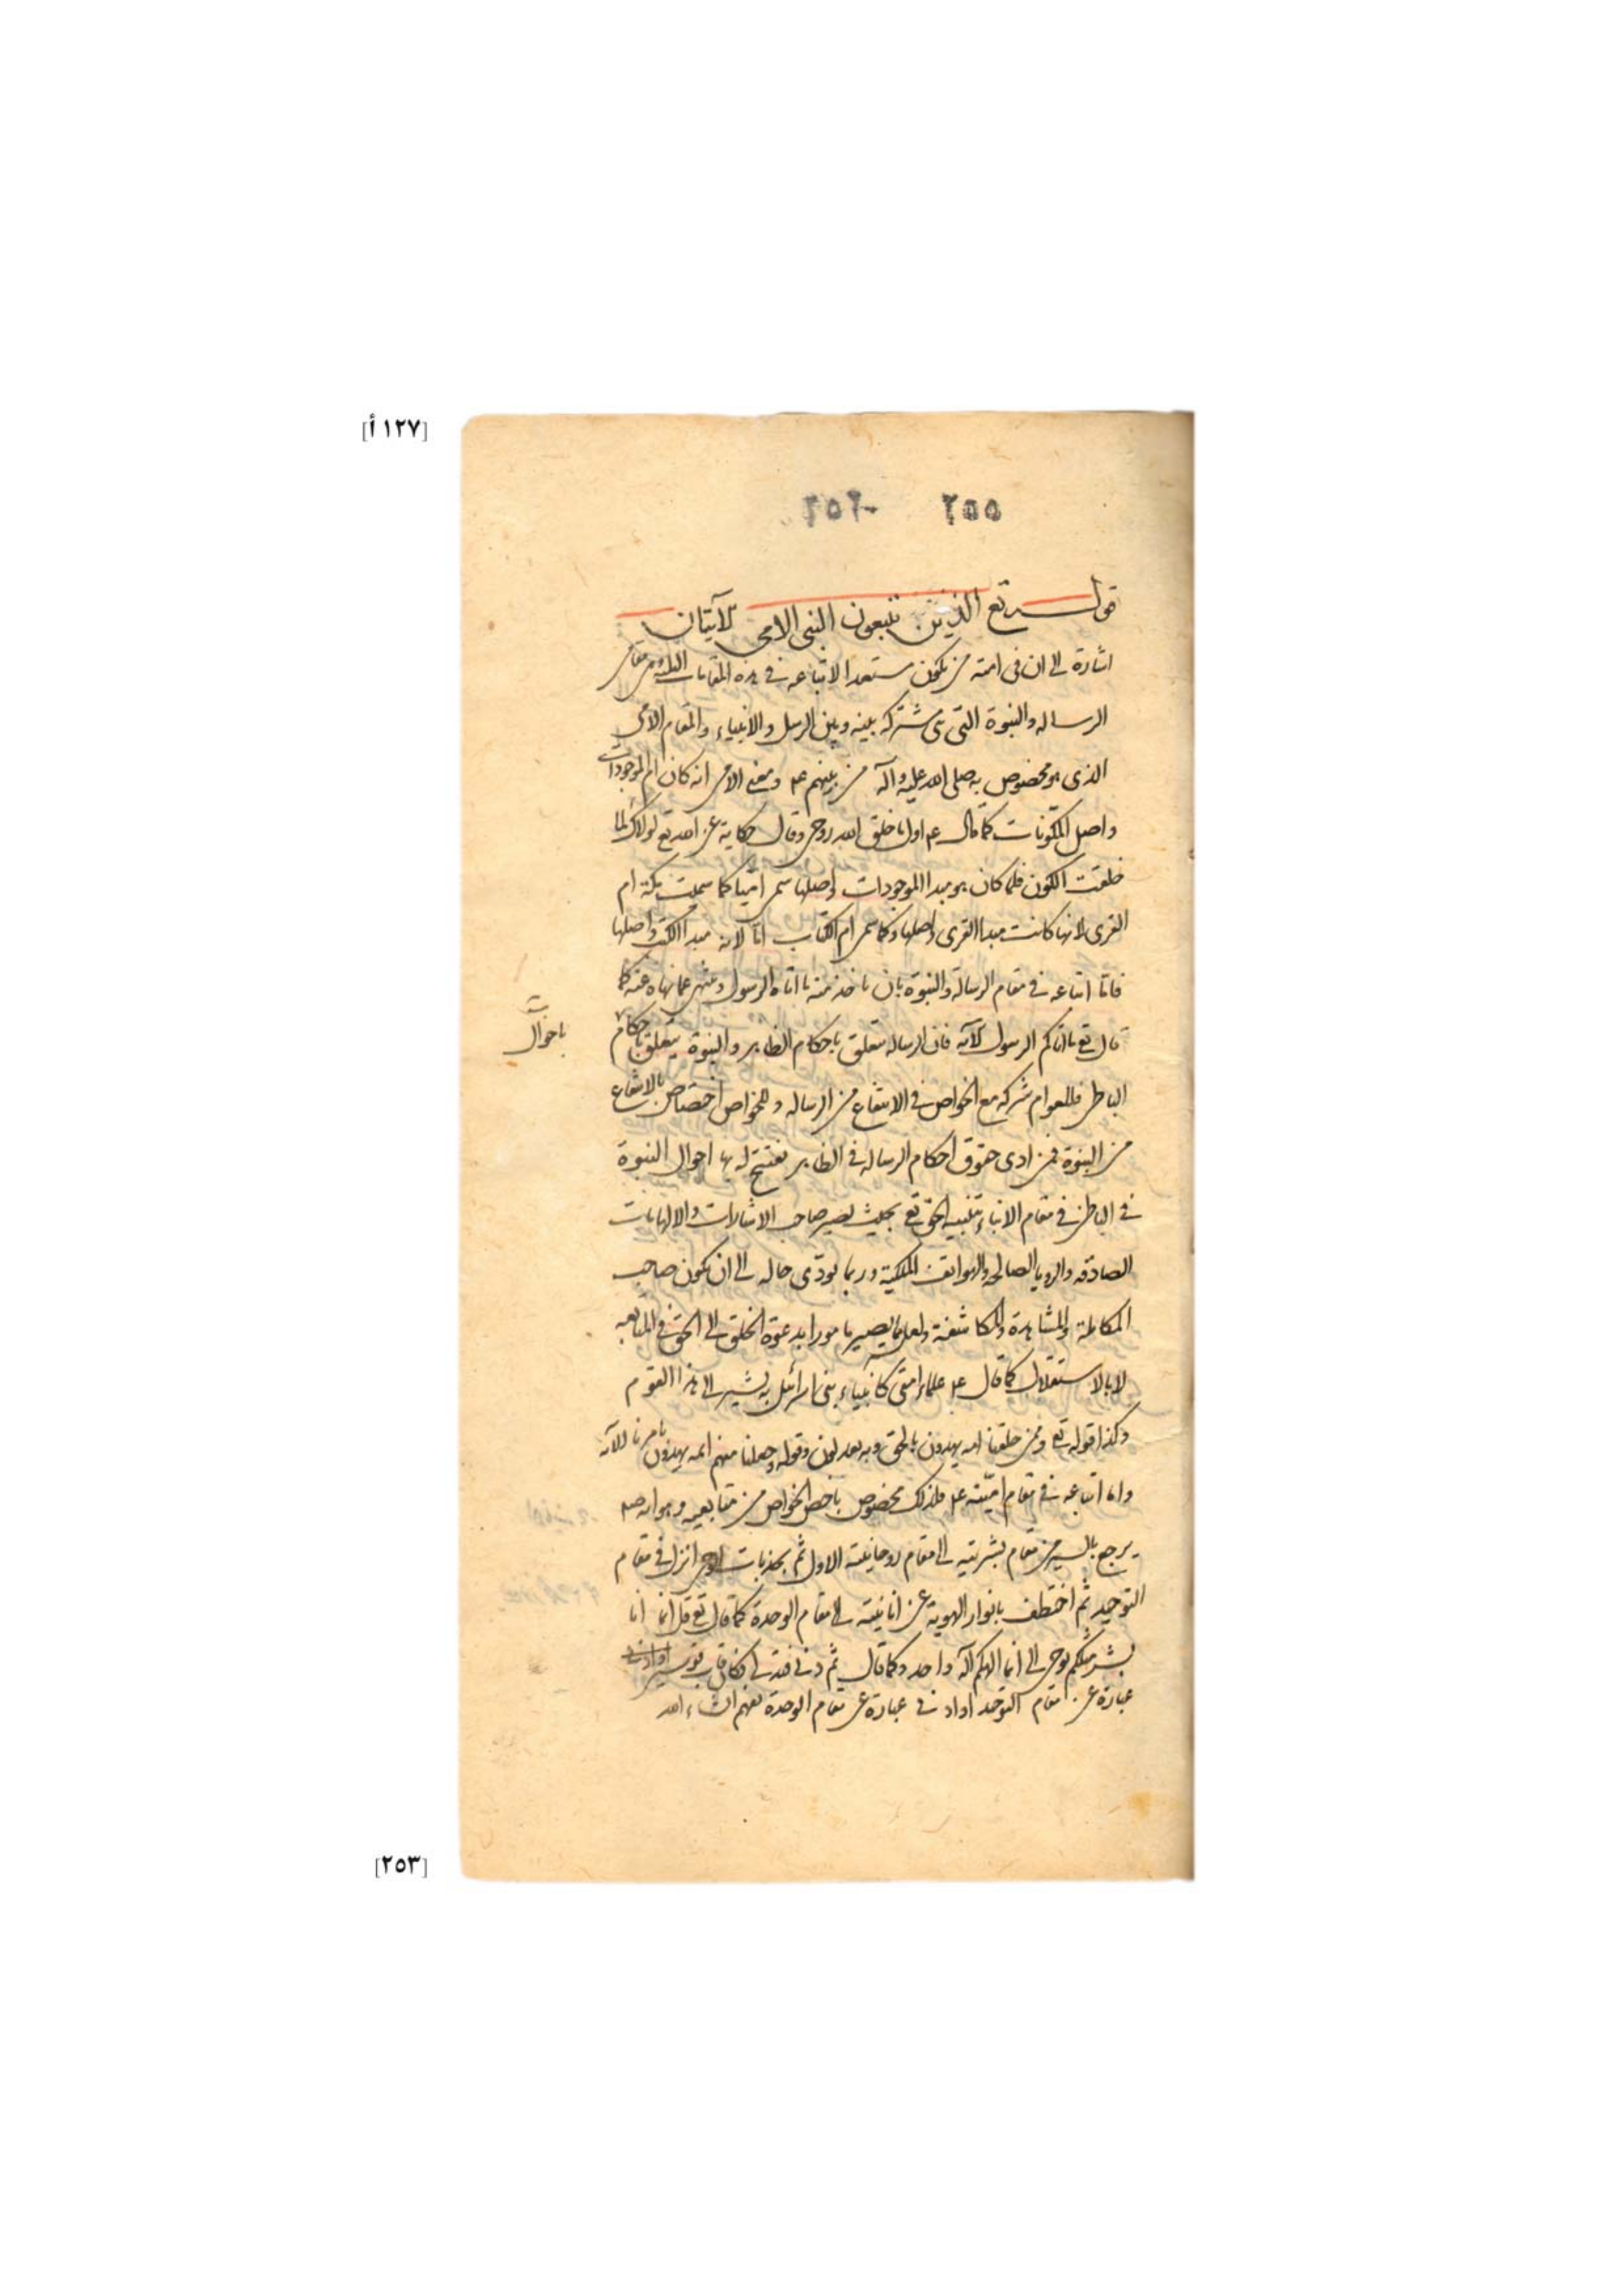 [١٢٧ أ]
٢٥٥ ٢٥٢
قوله تع الذين يتبعون النبى الامى الآيتان
اشارة الى ان فى امته من يكون مستعدا لاتباعه فى هذه المقامات الثلثة وهى مقام
الرساله والنبوة التى هى مشتركه بينه وبين الرسل والانبياء والمقام الامى
الذى هو مخصوص به صلى الله عليه وآله من بينهم ع م ومعنى الامى انه كان ام الموجودات
واصل المكونات كما قال ع م اول ما خلق الله روحى وقال حكاية عن الله تع لولاك لما
خلقت الكون فلما كان هو مبدا الموجودات واصلها سمى اميا كما سميت مكة ام
القرى لانها كانت مبدا القرى واصلها وكما سمى ام الكتاب اما لانه مبدا الكتب واصلها
فاما اتباعه فى مقام الرسالة والنبوة بان ياخذ منه ما اتاه الرسول وينتهى عما نهاه عنه كما
قال تع ما اتاكم الرسول الآيه فان الرساله تتعلق باحكام الظاهر والنبوة يتعلق باحكام
باحوال
الباطن فللعوام شركه مع الخواص فى الانتفاع من الرساله وللخواص اختصاص بالانتفاع
من النبوة فمن ادى حقوق احكام الرساله فى الظاهر يفتتح له بها احوال النبوة
فى الباطن فى مقام الانباء بتنبيه الحق تع بحيث يصير صاحب الاشارات والالهامات
الصادقه والرويا الصالحه والهواتف الملكية وربما يودّى حاله الى ان يكون صاحب
المكالمة والمشاهدة والمكاشفة ولعله يصير مامورا بدعوة الخلق الى الحق فى المتابعه
لا بالاستقلال كما قال ع م علماء امتى كانبياء بنى اسرائيل به يشير الى هذا القوم
وكذا قوله تع وممن خلقنا امه يهدون بالحق وبه يعدلون وقوله وجعلنا منهم ائمه يهدون بامرنا الآيه
واما اتباعه فى مقام اميّته ع م فلذلك مخصوص باخص الخواص من متابعيه وهو انه صلعم
يرجع بالسير من مقام بشريته الى مقام روحانيته الاول ثم بجذبات الوحى انزل فى مقام
التوحيد ثم اختطف بانوار الهوية عن انانيته الى مقام الوحدة كما قال تع قل انما انا
بشر مثلكم يوحى الى انما الهكم اله واحد وكما قال ثم دنى فتدلى فكان قاب قوسين او ادنى
عبارة عن مقام التوحيد او ادنى عبارة عن مقام الوحدة تفهم ان شاء الله
[٢٥٣]